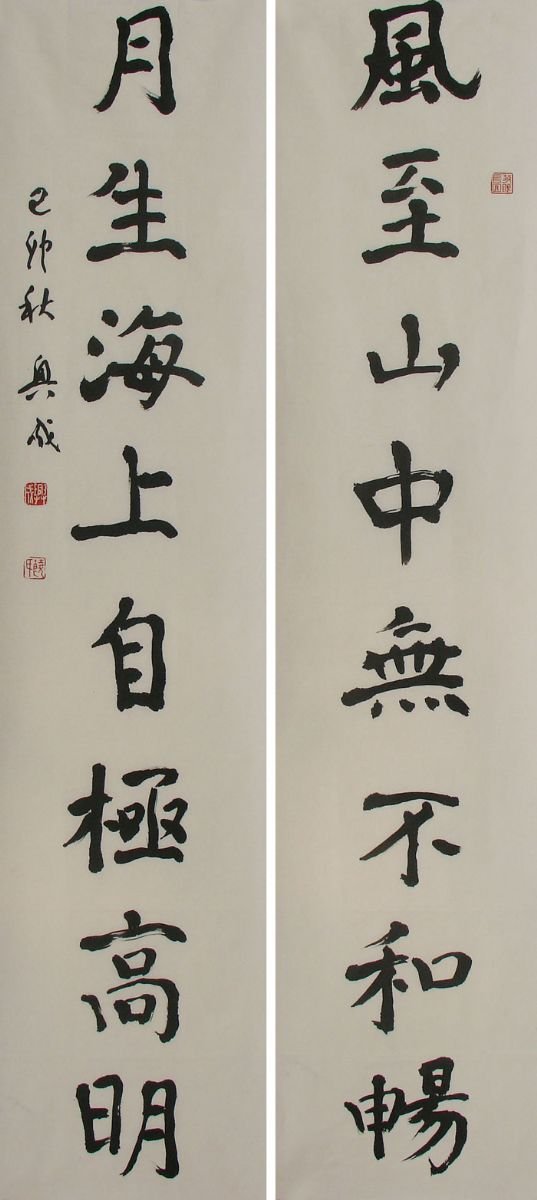 風至山中無不和暢
月生海上自極高明
己卯秋 興成